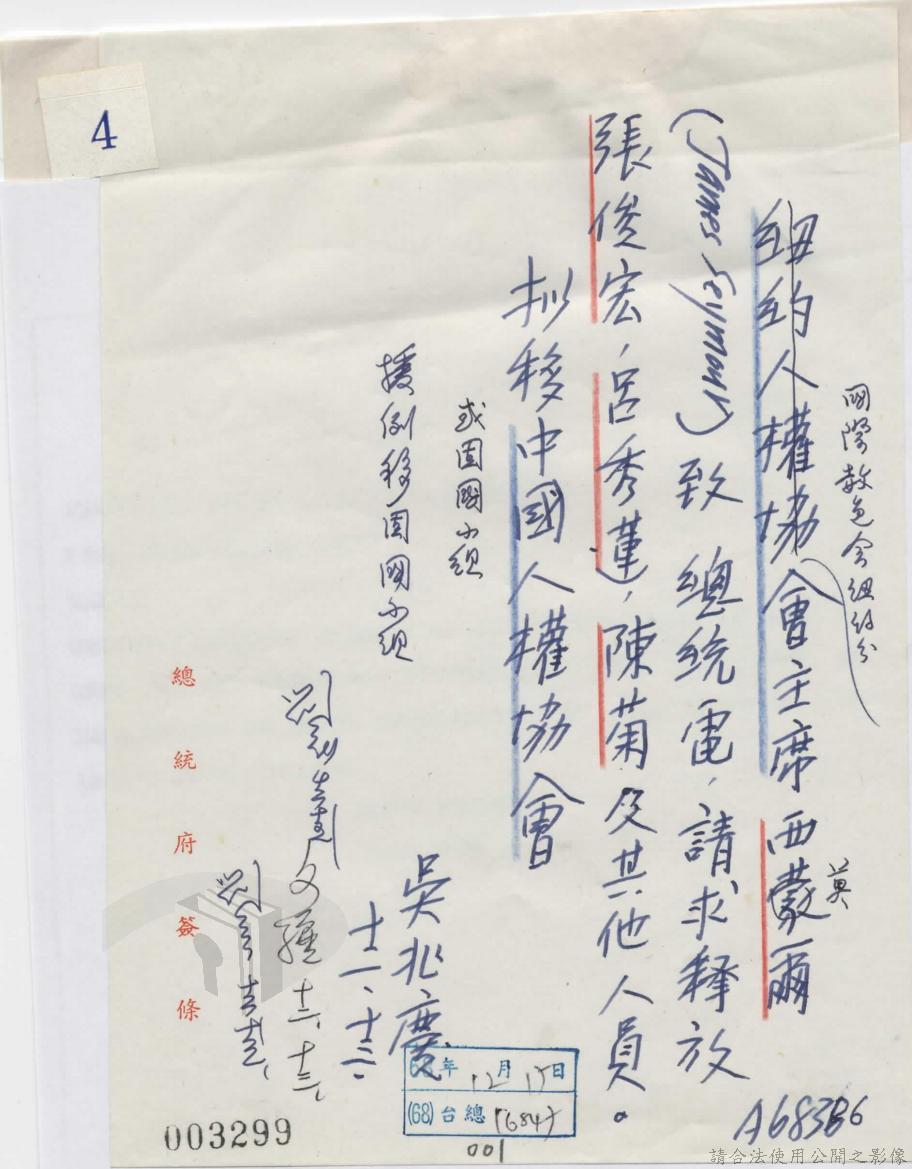 4
國際赦免會紐約分
紐約人權協會主席西蒙爾
莫
(James Seymour)致 總統電，請求釋放
張俊宏，呂秀蓮，陳菊及其他人員。
擬移中國人權協會
或固國小組
援例移固國小組
吳兆慶
十二、十三、
十二、十三、
總統府簽條
68年12月17日
(68)台總
003299
001
A68386
請合法使用公開之影像